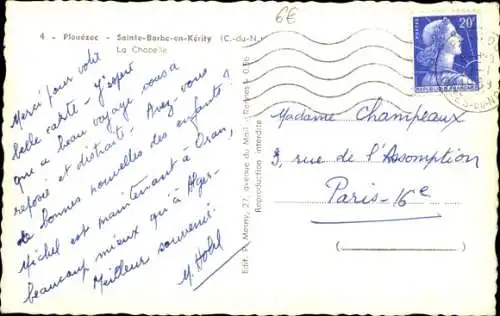 6€
4 - Plouézec - Sainte-Barbe-en-Kérity (C.-du-N.)
La Chapelle
Merci pour votre
belle carte - J'espère
que ce beau voyage vous a
reposée et distraite. Avez-vous
de bonnes nouvelles des enfants?
Michel est maintenant à Oran,
beaucoup mieux qu'à Alger-
Meilleur souvenir.
Edit. P. Mesny, 27, avenue du Mail (Rennes)
Reproduction interdite
20F
REPUBLIQUE FRANÇAISE
Madame Champeaux
3, rue de l'Assomption
Paris-16e